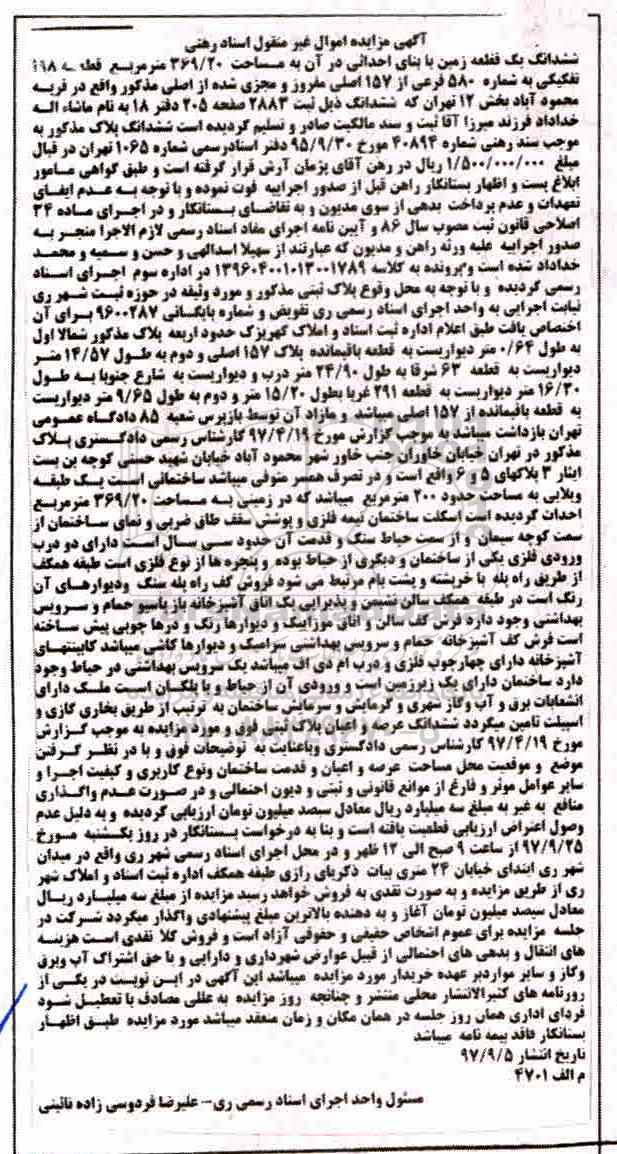 آگهی مزایده اموال غیر منقول اسناد رهنی
ششدانگ یک قطعه زمین با بنای احداثی در آن به مساحت ۳۶۹/۲۰ مترمربع قطعه
تفکیکی به شماره ۵۸۰ فرعی از ۱۵۷ اصلی مفروز و مجزی شده از اصلی مذکور واقع در قریه
محمود آباد بخش ۱۲ تهران که ششدانگ ذیل ثبت ۲۸۸۳ صفحه ۲۰۵ دفتر ۱۸ به نام ماشاء اله
خداداد فرزند میرزا آقا ثبت و سند مالکیت صادر و تسلیم گردیده است ششدانگ پلاک مذکور به
موجب سند رهنی شماره ۴۰۸۹۴ مورخ ۹۵/۹/۳۰ دفتر اسنادرسمی شماره ۱۰۶۵ تهران در قبال
مبلغ ۱/۵۰۰/۰۰۰/۰۰۰ ریال در رهن آقای پژمان آرش قرار گرفته است و طبق گواهی مامور
ابلاغ پست و اظهار بستانکار راهن قبل از صدور اجراییه فوت نموده و با توجه به عدم ایفای
تعهدات و عدم پرداخت بدهی از سوی مدیون و به تقاضای بستانکار و در اجرای ماده ۳۴
اصلاحی قانون ثبت مصوب سال ۸۶ و آیین نامه اجرای مفاد اسناد رسمی لازم الاجرا منجر به
صدور اجراییه علیه ورثه راهن و مدیون که عبارتند از سهیلا اسدالهی و حسن و سمیه و محمد
خداداد شده است وپرونده به کلاسه ۱۳۹۶۰۴۰۰۱۰۱۳۰۰۱۷۸۹ در اداره سوم اجرای اسناد
رسمی گردیده و با توجه به محل وقوع پلاک ثبتی مذکور و مورد وثیقه در حوزه ثبت شهر ری
نیابت اجرایی به واحد اجرای اسناد رسمی ری تفویض و شماره بایگانی ۹۶۰۰۲۸۷ برای آن
اختصاص یافت طبق اعلام اداره ثبت اسناد و املاک کهریزک حدود اربعه پلاک مذکور شمالا اول
به طول ۰/۶۴ متر دیواریست به قطعه باقیمانده پلاک ۱۵۷ اصلی و دوم به طول ۱۴/۵۷ متر
دیواریست به قطعه ۶۳ شرقا به طول ۲۴/۹۰ متر درب و دیواریست به شارع جنوبا به طول
۱۶/۳۰ متر دیواریست به قطعه ۲۹۱ غربا بطول ۱۵/۲۰ متر و دوم به طول ۹/۶۵ متر دیواریست
به قطعه باقیمانده از ۱۵۷ اصلی میباشد و مازاد آن توسط بازپرس شعبه ۸۵ دادگاه عمومی
تهران بازداشت میباشد به موجب گزارش مورخ ۹۷/۴/۱۹ کارشناس رسمی دادگستری پلاک
مذکور در تهران خیابان خاوران جنب خاور شهر محمود آباد خیابان شهید حسنی کوچه بن بست
ایثار ۳ پلاکهای ۵ و ۶ واقع است و در تصرف همسر متوفی میباشد ساختمانی است یک طبقه
ویلایی به مساحت حدود ۲۰۰ مترمربع میباشد که در زمینی به مساحت ۳۶۹/۲۰ مترمربع
احداث گردیده است اسکلت ساختمان نیمه فلزی و پوشش سقف طاق ضربی و نمای ساختمان از
سمت کوچه سیمان و از سمت حیاط سنگ و قدمت آن حدود سی سال است دارای دو درب
ورودی فلزی یکی از ساختمان و دیگری از حیاط بوده و پنجره ها از نوع فلزی است طبقه همکف
از طریق راه پله با خرپشته و پشت بام مرتبط می شود فروش کف راه پله سنگ ودیوارهای آن
رنگ است در طبقه همکف سالن نشیمن و پذیرایی یک اتاق آشپزخانه باز پاسیو حمام و سرویس
بهداشتی وجود دارد فرش کف سالن و اتاق موزاییک و دیوارها رنگ و درها چوبی پیش ساخته
است فرش کف آشپزخانه حمام و سرویس بهداشتی سرامیک و دیوارها کاشی میباشد کابینتهای
آشپزخانه دارای چهارچوب فلزی و درب ام دی اف میباشد یک سرویس بهداشتی در حیاط وجود
دارد ساختمان دارای یک زیرزمین است و ورودی آن از حیاط و با پلکان است ملک دارای
انشعابات برق و آب وگاز شهری و گرمایش و سرمایش ساختمان به ترتیب از طریق بخاری گازی و
اسپیلت تامین میگردد ششدانگ عرصه و اعیان پلاک ثبتی فوق و مورد مزایده به موجب گزارش
مورخ ۹۷/۴/۱۹ کارشناس رسمی دادگستری وباعنایت به توضیحات فوق و با در نظر گرفتن
موضع و موقعیت محل مساحت عرصه و اعیان و قدمت ساختمان ونوع کاربری و کیفیت اجرا و
سایر عوامل موثر و فارغ از موانع قانونی و ثبتی و دیون احتمالی و در صورت عدم واگذاری
منافع به غیر به مبلغ سه میلیارد ریال معادل سیصد میلیون تومان ارزیابی گردیده و به دلیل عدم
وصول اعتراض ارزیابی قطعیت یافته است و بنا به درخواست بستانکار در روز یکشنبه مورخ
۹۷/۹/۲۵ از ساعت ۹ صبح الی ۱۲ ظهر و در محل اجرای اسناد رسمی شهر ری واقع در میدان
شهر ری ابتدای خیابان ۲۴ متری بیات ذکریای رازی طبقه همکف اداره ثبت اسناد و املاک شهر
ری از طریق مزایده و به صورت نقدی به فروش خواهد رسید مزایده از مبلغ سه میلیارد ریال
معادل سیصد میلیون تومان آغاز و به دهنده بالاترین مبلغ پیشنهادی واگذار میگردد شرکت در
جلسه مزایده برای عموم اشخاص حقیقی و حقوقی آزاد است و فروش کلا نقدی است هزینه
های انتقال و بدهی های احتمالی از قبیل عوارض شهرداری و دارایی و یا حق اشتراک آب وبرق
وگاز و سایر مواردبر عهده خریدار مورد مزایده میباشد این آگهی در این نوبت در یکی از
روزنامه های کثیرالانتشار محلی منتشر و چنانچه روز مزایده به عللی مصادف با تعطیل شود
فردای اداری همان روز جلسه در همان مکان و زمان منعقد میباشد مورد مزایده طبق اظهار
بستانکار فاقد بیمه نامه میباشد
تاریخ انتشار ۹۷/۹/۵
م الف ۴۷۰۱
مسئول واحد اجرای اسناد رسمی ری- علیرضا فردوسی زاده نائینی